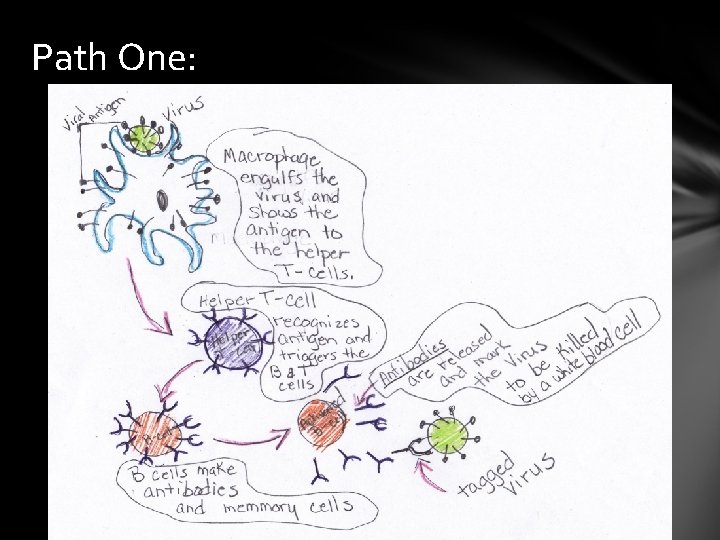 Path One:
Viral Antigen
Virus
Macrophage
engulfs the
virus, and
shows the
antigen to
the helper
T-cells.
Helper T-cell
recognizes
antigen and
triggers the
B & T
cells
Helper
B-cell
B cells make
antibodies
and memmory cells
Activated
B-cell
Antibodies
are released
and mark
the virus
to be killed
by a white blood cell
tagged
virus